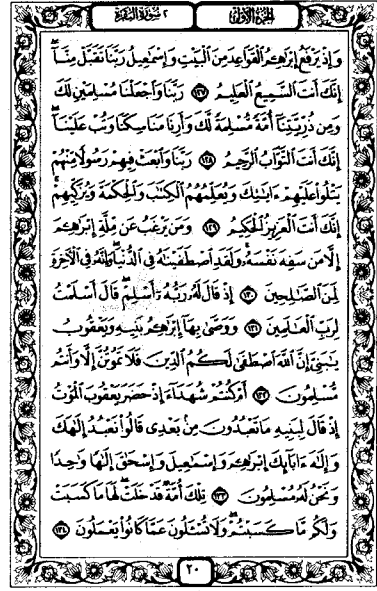 الجزء الأول
٢ سورة البقرة
وَإِذْ يَرْفَعُ إِبْرَٰهِـۧمُ ٱلْقَوَاعِدَ مِنَ ٱلْبَيْتِ وَإِسْمَٰعِيلُ رَبَّنَا تَقَبَّلْ مِنَّآ ۖ
إِنَّكَ أَنتَ ٱلسَّمِيعُ ٱلْعَلِيمُ ١٢٧ رَبَّنَا وَٱجْعَلْنَا مُسْلِمَيْنِ لَكَ
وَمِن ذُرِّيَّتِنَآ أُمَّةً مُّسْلِمَةً لَّكَ وَأَرِنَا مَنَاسِكَنَا وَتُبْ عَلَيْنَآ ۖ
إِنَّكَ أَنتَ ٱلتَّوَّابُ ٱلرَّحِيمُ ١٢٨ رَبَّنَا وَٱبْعَثْ فِيهِمْ رَسُولًا مِّنْهُمْ
يَتْلُوا۟ عَلَيْهِمْ ءَايَٰتِكَ وَيُعَلِّمُهُمُ ٱلْكِتَٰبَ وَٱلْحِكْمَةَ وَيُزَكِّيهِمْ ۚ
إِنَّكَ أَنتَ ٱلْعَزِيزُ ٱلْحَكِيمُ ١٢٩ وَمَن يَرْغَبُ عَن مِّلَّةِ إِبْرَٰهِـۧمَ
إِلَّا مَن سَفِهَ نَفْسَهُۥ ۚ وَلَقَدِ ٱصْطَفَيْنَٰهُ فِى ٱلدُّنْيَا ۖ وَإِنَّهُۥ فِى ٱلْـَٔاخِرَةِ
لَمِنَ ٱلصَّٰلِحِينَ ١٣٠ إِذْ قَالَ لَهُۥ رَبُّهُۥٓ أَسْلِمْ ۖ قَالَ أَسْلَمْتُ
لِرَبِّ ٱلْعَٰلَمِينَ ١٣١ وَوَصَّىٰ بِهَآ إِبْرَٰهِـۧمُ بَنِيهِ وَيَعْقُوبُ
يَٰبَنِىَّ إِنَّ ٱللَّهَ ٱصْطَفَىٰ لَكُمُ ٱلدِّينَ فَلَا تَمُوتُنَّ إِلَّا وَأَنتُم
مُّسْلِمُونَ ١٣٢ أَمْ كُنتُمْ شُهَدَآءَ إِذْ حَضَرَ يَعْقُوبَ ٱلْمَوْتُ
إِذْ قَالَ لِبَنِيهِ مَا تَعْبُدُونَ مِنۢ بَعْدِى قَالُوا۟ نَعْبُدُ إِلَٰهَكَ
وَإِلَٰهَ ءَابَآئِكَ إِبْرَٰهِـۧمَ وَإِسْمَٰعِيلَ وَإِسْحَٰقَ إِلَٰهًا وَٰحِدًا
وَنَحْنُ لَهُۥ مُسْلِمُونَ ١٣٣ تِلْكَ أُمَّةٌ قَدْ خَلَتْ ۖ لَهَا مَا كَسَبَتْ
وَلَكُم مَّا كَسَبْتُمْ ۖ وَلَا تُسْـَٔلُونَ عَمَّا كَانُوا۟ يَعْمَلُونَ ١٣٤
٢٠